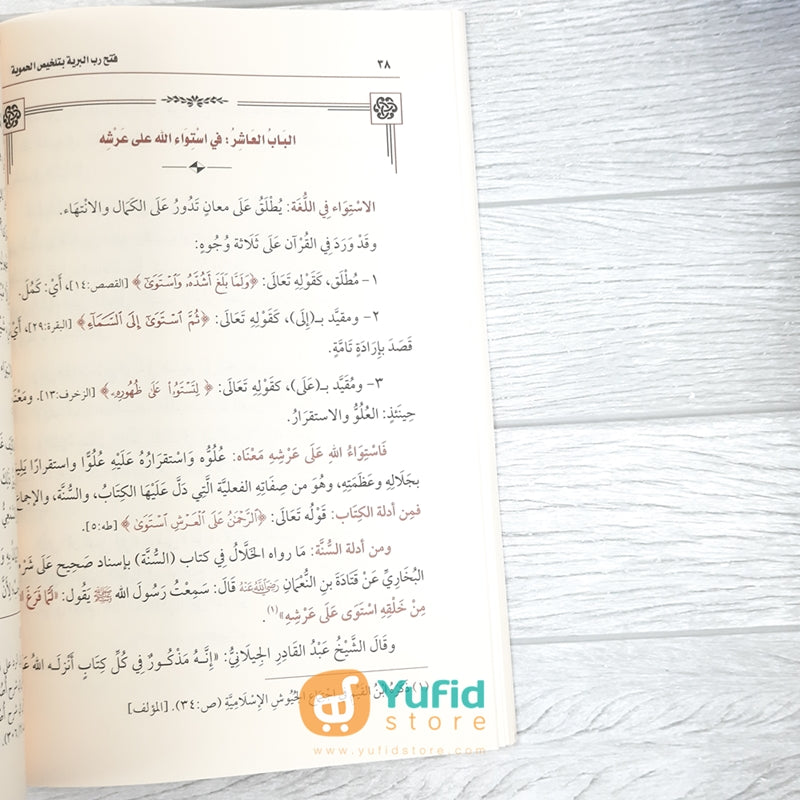 ٣٨
فتح رب البرية بتلخيص الحموية
البَابُ العَاشِرُ: في اسْتِوَاء الله على عَرْشِه
الاسْتِوَاء فِي اللُّغَة: يُطْلَقُ عَلَى معانٍ تَدُورُ عَلَى الكَمَال والانْتِهَاء.
وقَدْ وَرَدَ فِي القُرْآن عَلَى ثَلَاثة وُجُوهٍ:
١- مُطْلَق، كَقَوْلِهِ تَعَالَى: ﴿وَلَمَّا بَلَغَ أَشُدَّهُۥ وَٱسْتَوَىٰٓ﴾ [القصص:١٤]، أَيْ: كَمُلَ.
٢- ومقيَّد بـ(إِلَى)، كَقَوْلِهِ تَعَالَى: ﴿ثُمَّ ٱسْتَوَىٰٓ إِلَى ٱلسَّمَآءِ﴾ [البقرة:٢٩]، أَيْ
قَصَدَ بِإِرَادَةٍ تَامَّةٍ.
٣- ومُقَيَّد بـ(عَلَى)، كقَوْلِهِ تَعَالَى: ﴿لِتَسْتَوُۥا۟ عَلَىٰ ظُهُورِهِۦ﴾ [الزخرف:١٣]. ومَعْنَا
حِينَئذٍ: العُلُوُّ والاستقرَارُ.
فَاسْتِوَاءُ اللهِ عَلَى عَرْشِهِ مَعْنَاه: عُلُوُّه وَاسْتقرَارُهُ عَلَيْهِ عُلُوًّا واستقرارًا يَلِيقُ
بجَلَالِهِ وعَظَمَتِهِ، وهُوَ من صِفَاتِهِ الفعليَّة الَّتِي دَلَّ عَلَيْهَا الكِتَابُ، والسُّنَّة، والإجماع
فمِن أدلة الكِتَاب: قَوْلُه تَعَالَى: ﴿ٱلرَّحْمَٰنُ عَلَى ٱلْعَرْشِ ٱسْتَوَىٰ﴾ [طه:٥].
ومن أدلة السُّنة: مَا رواه الخَلَّالُ في كتاب (السُّنَّة) بإسناد صَحِيح عَلَى شَرْ
البُخَارِيِّ عَنْ قتَادَةَ بنِ النُّعْمَانِ رَضِيَ اللَّهُ عَنْهُ قَالَ: سَمِعْتُ رَسُولَ الله ﷺ يَقُول: «لَمَّا فَرَغَ
مِنْ خَلْقِهِ اسْتَوَى عَلَى عَرْشِهِ»(١).
وقَالَ الشَّيْخُ عَبْدُ القَادِرِ الجِيلَانِيُّ: «إِنَّهُ مَذْكُورٌ فِي كُلِّ كِتَابٍ أَنْزَلَه اللهُ عَ
(١) ذكرهُ ابْنُ القَيِّم في اجتماع الجُيُوشِ الإِسْلَامِيَّةِ (ص:٣٤). [المؤلف]
Yufid
store
www.yufidstore.com